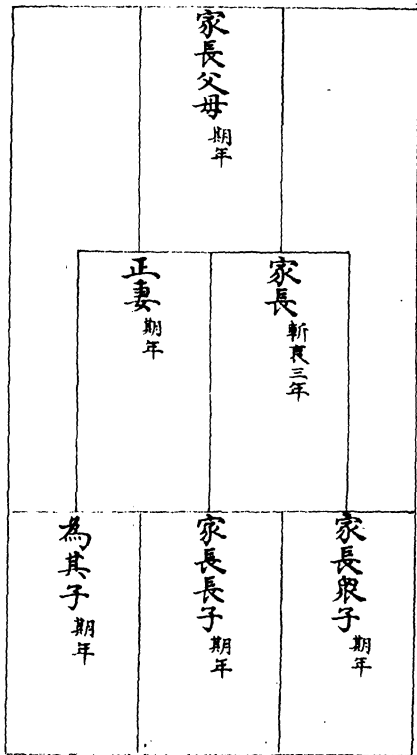 家長父母 期年
家長 斬衰三年
正妻 期年
家長眾子 期年
家長長子 期年
為其子 期年